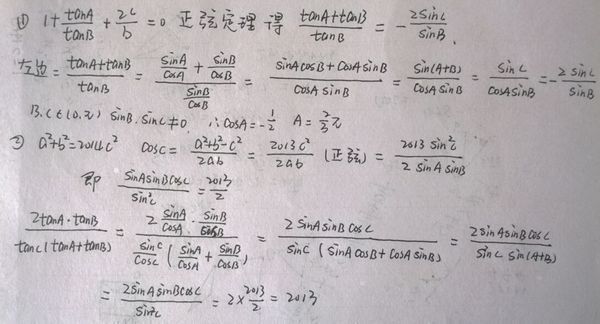 ① 1+tanA/tanB+2c/b=0 正弦定理得 (tanA+tanB)/tanB=-2sinC/sinB.
左边=(tanA+tanB)/tanB=(sinA/cosA+sinB/cosB)/(sinB/cosB)=(sinAcosB+cosAsinB)/(cosAsinB)=sin(A+B)/(cosAsinB)=sinC/(cosAsinB)=-2sinC/sinB
B.C∈(0,π) sinB.sinC≠0 ∴cosA=-1/2 A=2/3π
② a²+b²=2014c² cosC=(a²+b²-c²)/2ab=2013c²/2ab (正弦)=2013sin²C/(2sinAsinB)
即 sinAsinBcosC/sin²C=2013/2
2tanA·tanB/(tanC(tanA+tanB))=(2 sinA/cosA·sinB/cosB)/(sinC/cosC(sinA/cosA+sinB/cosB))=2sinAsinBcosC/(sinC(sinAcosB+cosAsinB))=2sinAsinBcosC/(sinC sin(A+B))
=2sinAsinBcosC/sin²C=2×2013/2=2013